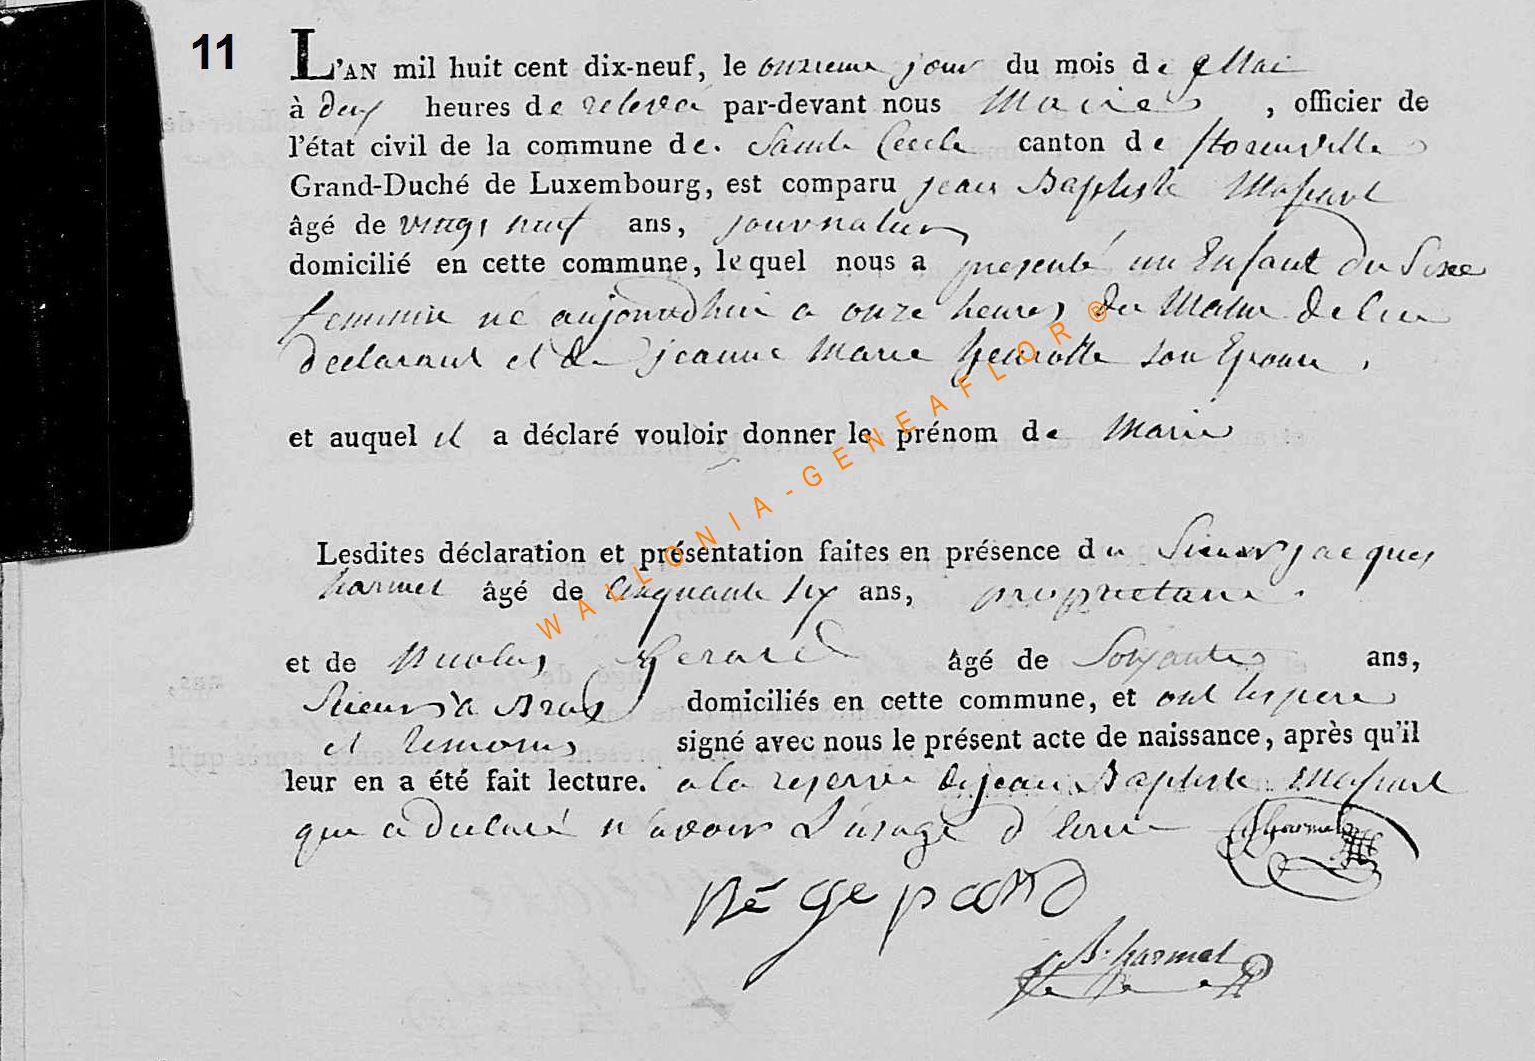 11
L'AN mil huit cent dix-neuf, le onzieme jour du mois de Mai
à deux heures de relevée par-devant nous Maire, officier de
l'état civil de la commune de. Sainte Cecile canton de florenville
Grand-Duché de Luxembourg, est comparu jean Baptiste Massart
âgé de vingt neuf ans, journalier
domicilié en cette commune, lequel nous a presenté un Enfant du Sexe
feminin né aujourdhui a onze heures du Matin de lui
declarant et de jeanne Marie henrotte son Epouse,
et auquel il a déclaré vouloir donner le prénom de Marie
Lesdites déclaration et présentation faites en présence du Sieur jacques
harmel âgé de cinquante six ans, proprietaire.
et de Nicolas Gerard âgé de Soixante ans,
domiciliés en cette commune, et ont les pere
et temoins signé avec nous le présent acte de naissance, après qu'il
leur en a été fait lecture. a la reserve de jean Baptiste Massart
que a declaré n'avoir L'usage d'Ecrire
JHarmel
B. harmel
WALLONIA-GENEAFLOR®